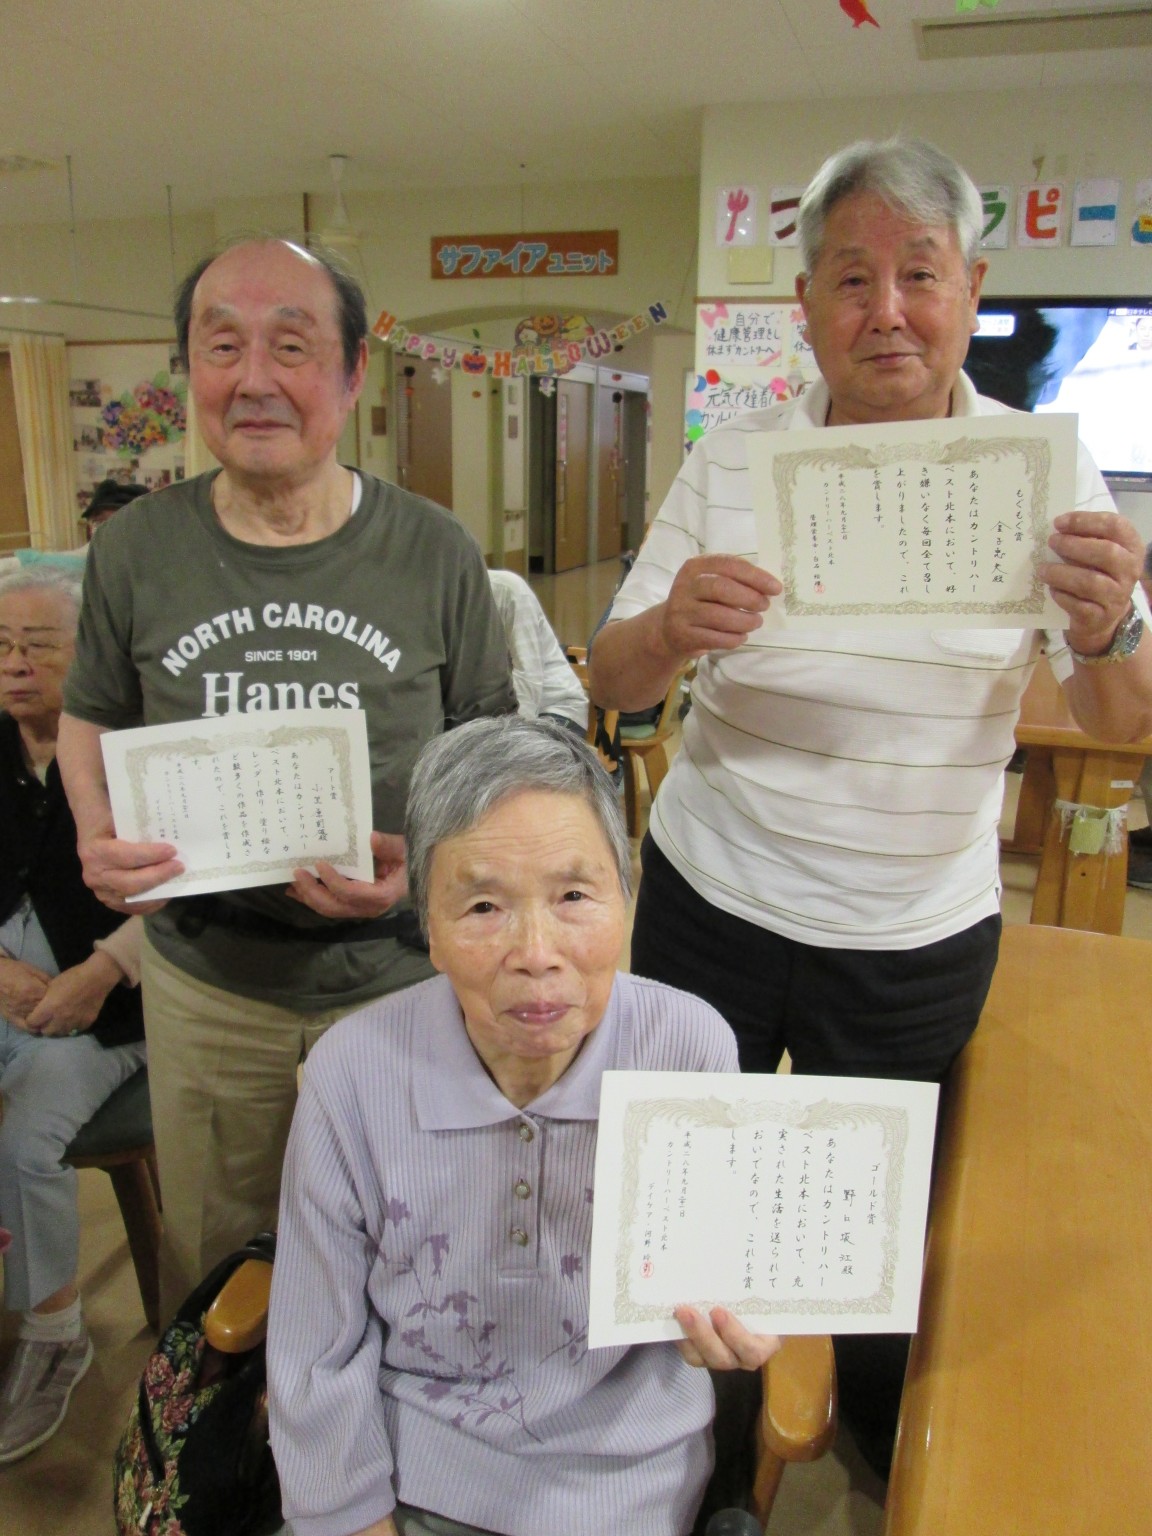 サファイアユニット
HAPPY HALLOWEEN
ラピー
自分で
健康管理をし
休まずカントリーへ
元気で
NORTH CAROLINA
SINCE 1901
Hanes
もぐもぐ賞
金子恵夫殿
あなたはカントリハー
ベスト北本において、好
き嫌いなく毎回全て召し
上がりましたので、これ
を賞します。
平成二八年九月
カントリーハーベスト北本
アート賞
あなたはカントリハー
ベスト北本において、カ
レンダー作り、塗り絵な
ど数多くの作品を作成さ
れたので、これを賞しま
す。
平成二八年九月
カントリーハーベスト北本
ゴールド賞
あなたはカントリハー
ベスト北本において、充
実された生活を送られて
おいでなので、これを賞
します。
平成二八年九月
カントリーハーベスト北本
デイケア・河野